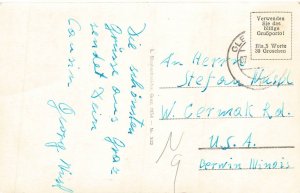 Verwenden
Sie das
billige
Grußporto!
Bis 5 Worte
Groschen
Die schönsten
Grüsse aus Graz
sendet Dein
Cousin
Georg
An Herrn
Stefan
W. Cermak Rd.
U.S.A.
Berwin Illinois